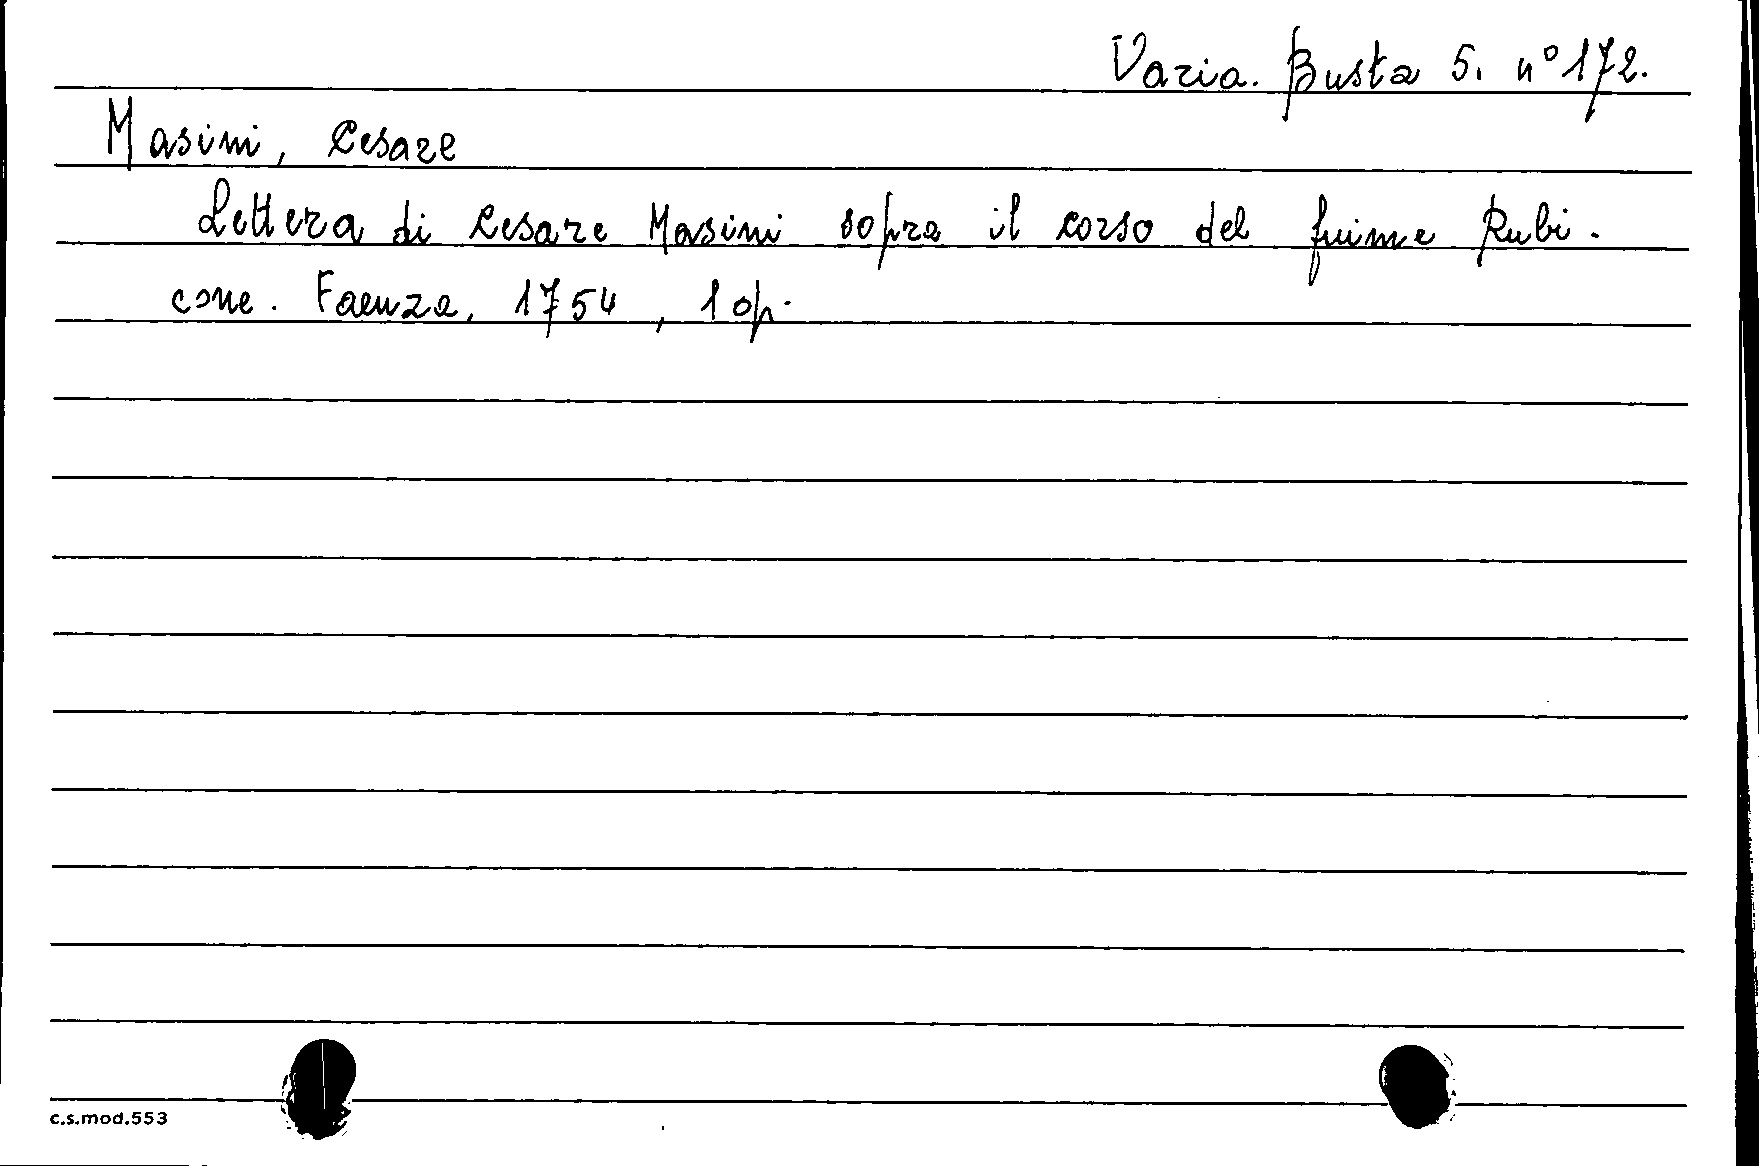 Varia. Busta 5. n° 172.
Masini, Cesare
Lettera di Cesare Masini sopra il corso del fuime Rubi-
cone. Faenza, 1754, 1 op.
c.s.mod.553